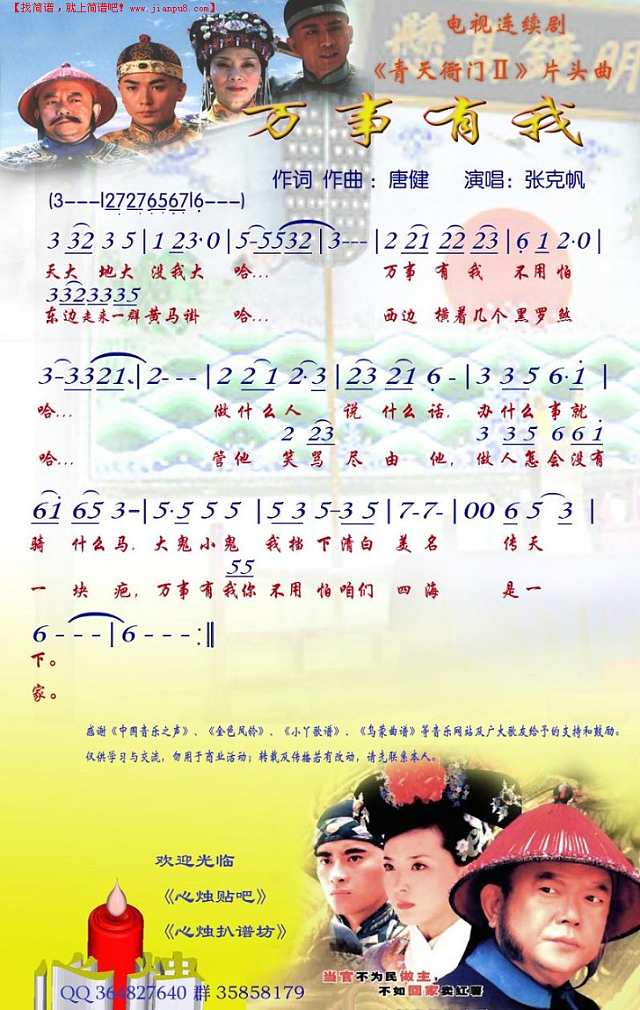 【找简谱，就上简谱吧！www.jianpu8.com】
明镜高悬
电视连续剧
《青天衙门Ⅱ》片头曲
万事有我
作词 作曲：唐健 演唱：张克帆
(3---|27276567|6---)
3 32 3 5|1 23·0|5-5532|3---|2 21 22 23|6 1 2·0|
天大 地大 没我大 哈... 万事 有我 不用怕
3323335
东边走来一群黄马褂 哈... 西边 横着几个黑罗煞
3-3321|2---|2 2 1 2·3|23 21 6-|3 3 5 6·1|
哈... 做什么人 说 什么话，办什么事就
2 23 3 3 5 6 6 1
哈... 管他 笑骂 尽由 他，做人怎会没有
61 65 3-|5·5 5 5|5 3 5-3 5|7-7-|00 6 5 3|
骑 什么马．大鬼小鬼 我挡下清白 美名 传天
55
一 块疤，万事有我你不用怕咱们 四海 是一
6---|6---:‖
下。
家。
感谢《中国音乐之声》、《金色风铃》、《小丫歌谱》、《乌蒙曲谱》等音乐网站及广大歌友给予的支持和鼓励。
仅供学习与交流，勿用于商业活动；转载及传播若有改动，请先联系本人。
欢迎光临
《心烛贴吧》
《心烛扒谱坊》
当官不为民做主，
不如回家卖红薯
QQ 364827640 群 35858179